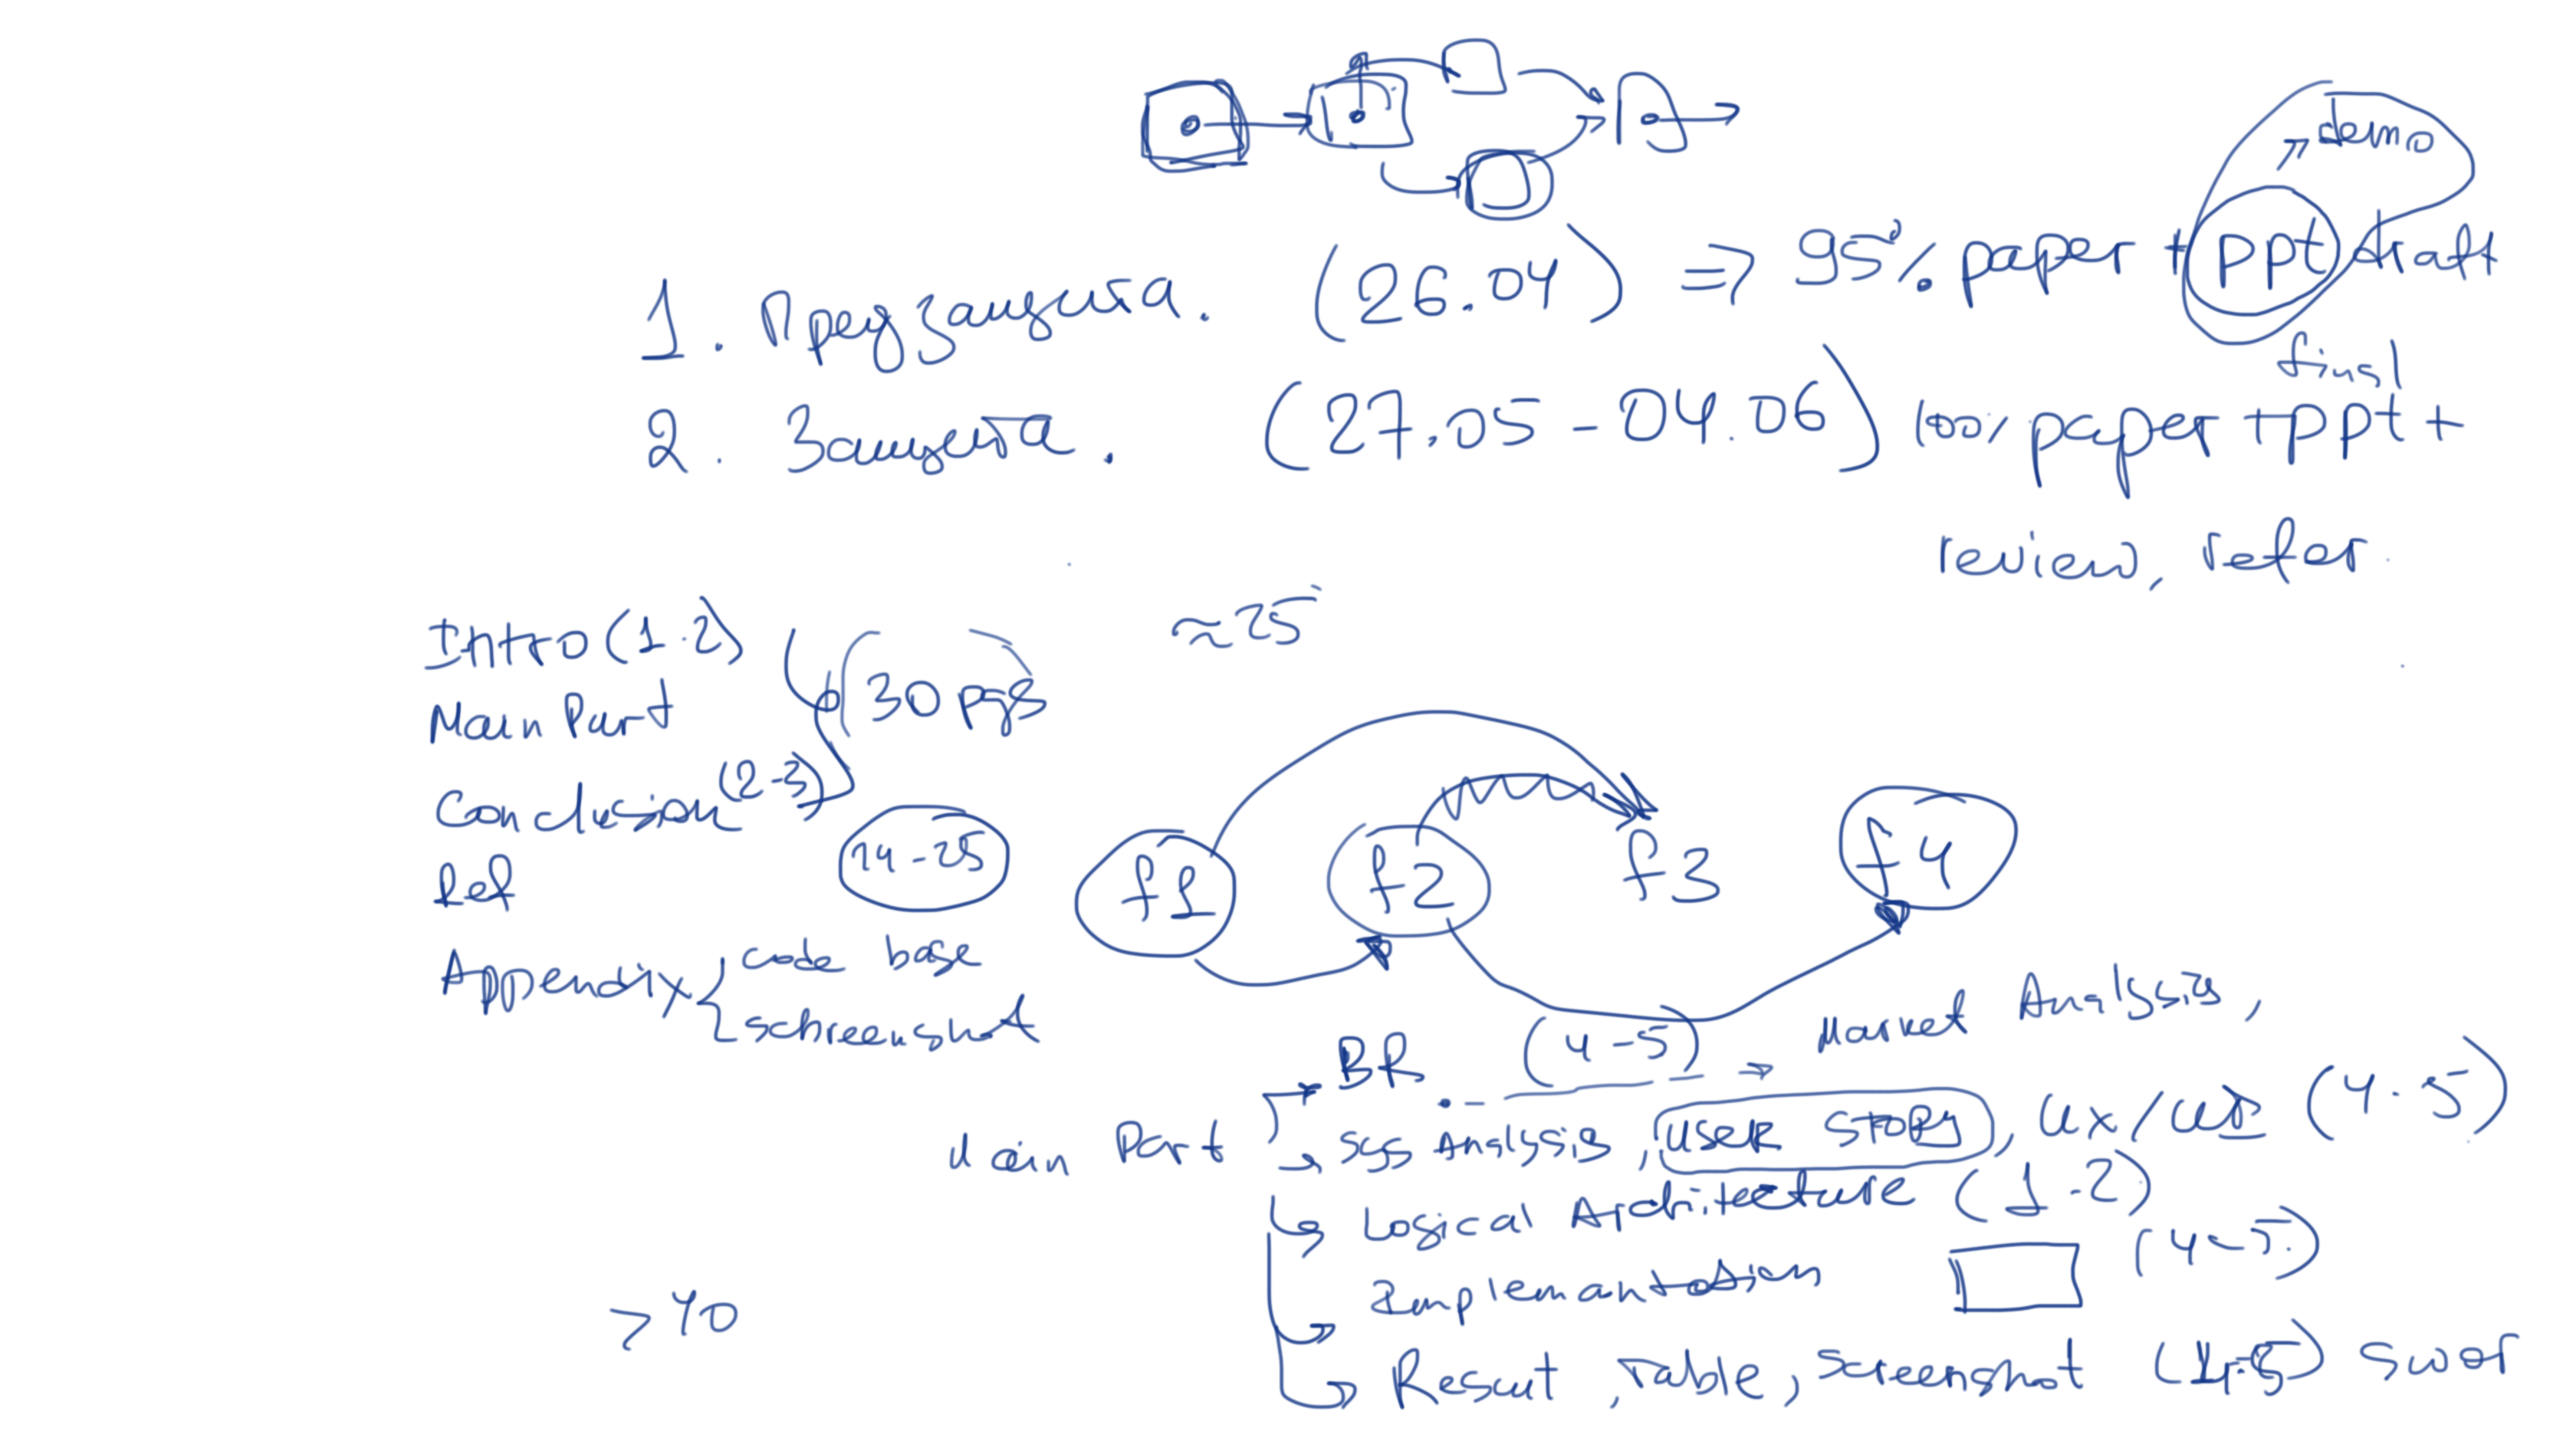 demo
1. Предзащита. (26.04) => 95% paper + ppt draft
final
2. Защита. (27.05 - 04.06) 100% paper + ppt +
review, refer
Intro (1-2)
≈25
30 pgs
Main Part
Conclusion (2-3)
14-25
f1 f2 f3 f4
Ref
Appendix { code base
schreenshot
Main Part
BR (4-5) → Market Analysis,
Sys Analysis, user story, ux/ui (4-5)
Logical Architecture (1-2)
Implemantation (4-5)
>40
Result, Table, screenshot (4-5) swot